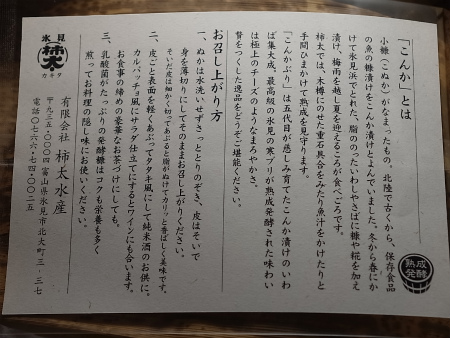 「こんか」とは
小糠(こぬか)がなまったもの。北陸で古くから、保存食品
の魚の糠漬けをこんか漬けとよんでいました。冬から春にか
けて氷見浜でとれた、脂ののったいわしやさばに糠や糀を加え
漬け、梅雨を越し夏を迎えるころが食べごろです。
柿太では、木樽にのせた重石具合をみたり魚汁をかけたりと
手間ひまかけて熟成を見守ります。
「こんかぶり」は五代目が慈しみ育てたこんか漬けのいわ
ば集大成。最高級の氷見の寒ブリが熟成発酵された味わい
は極上のチーズのようなまろやかさ。
贅をつくした逸品をどうぞご堪能ください。
熟成
発酵
お召し上がり方
一、ぬかは水洗いせずさっととりのぞき、皮はそいで
身を薄切りにしてそのままお召し上がりください。
そいだ皮は細かく切ってあぶると脂がぬけてカリッと香ばしく美味です。
二、皮ごと表面を軽くあぶってタタキ風にして純米酒のお供に。
カルパッチョ風にサラダ仕立てにするとワインにも合います。
お食事の締めの豪華なお茶づけにしても。
三、乳酸菌がたっぷりの発酵糠はコクも栄養も多く
煎ってお料理の隠し味にお使いください。
氷見
柿太
カキタ
有限会社 柿太水産
〒九三五-〇〇〇四 富山県氷見市北大町三-三七
電話〇七六六・七四・〇〇二五